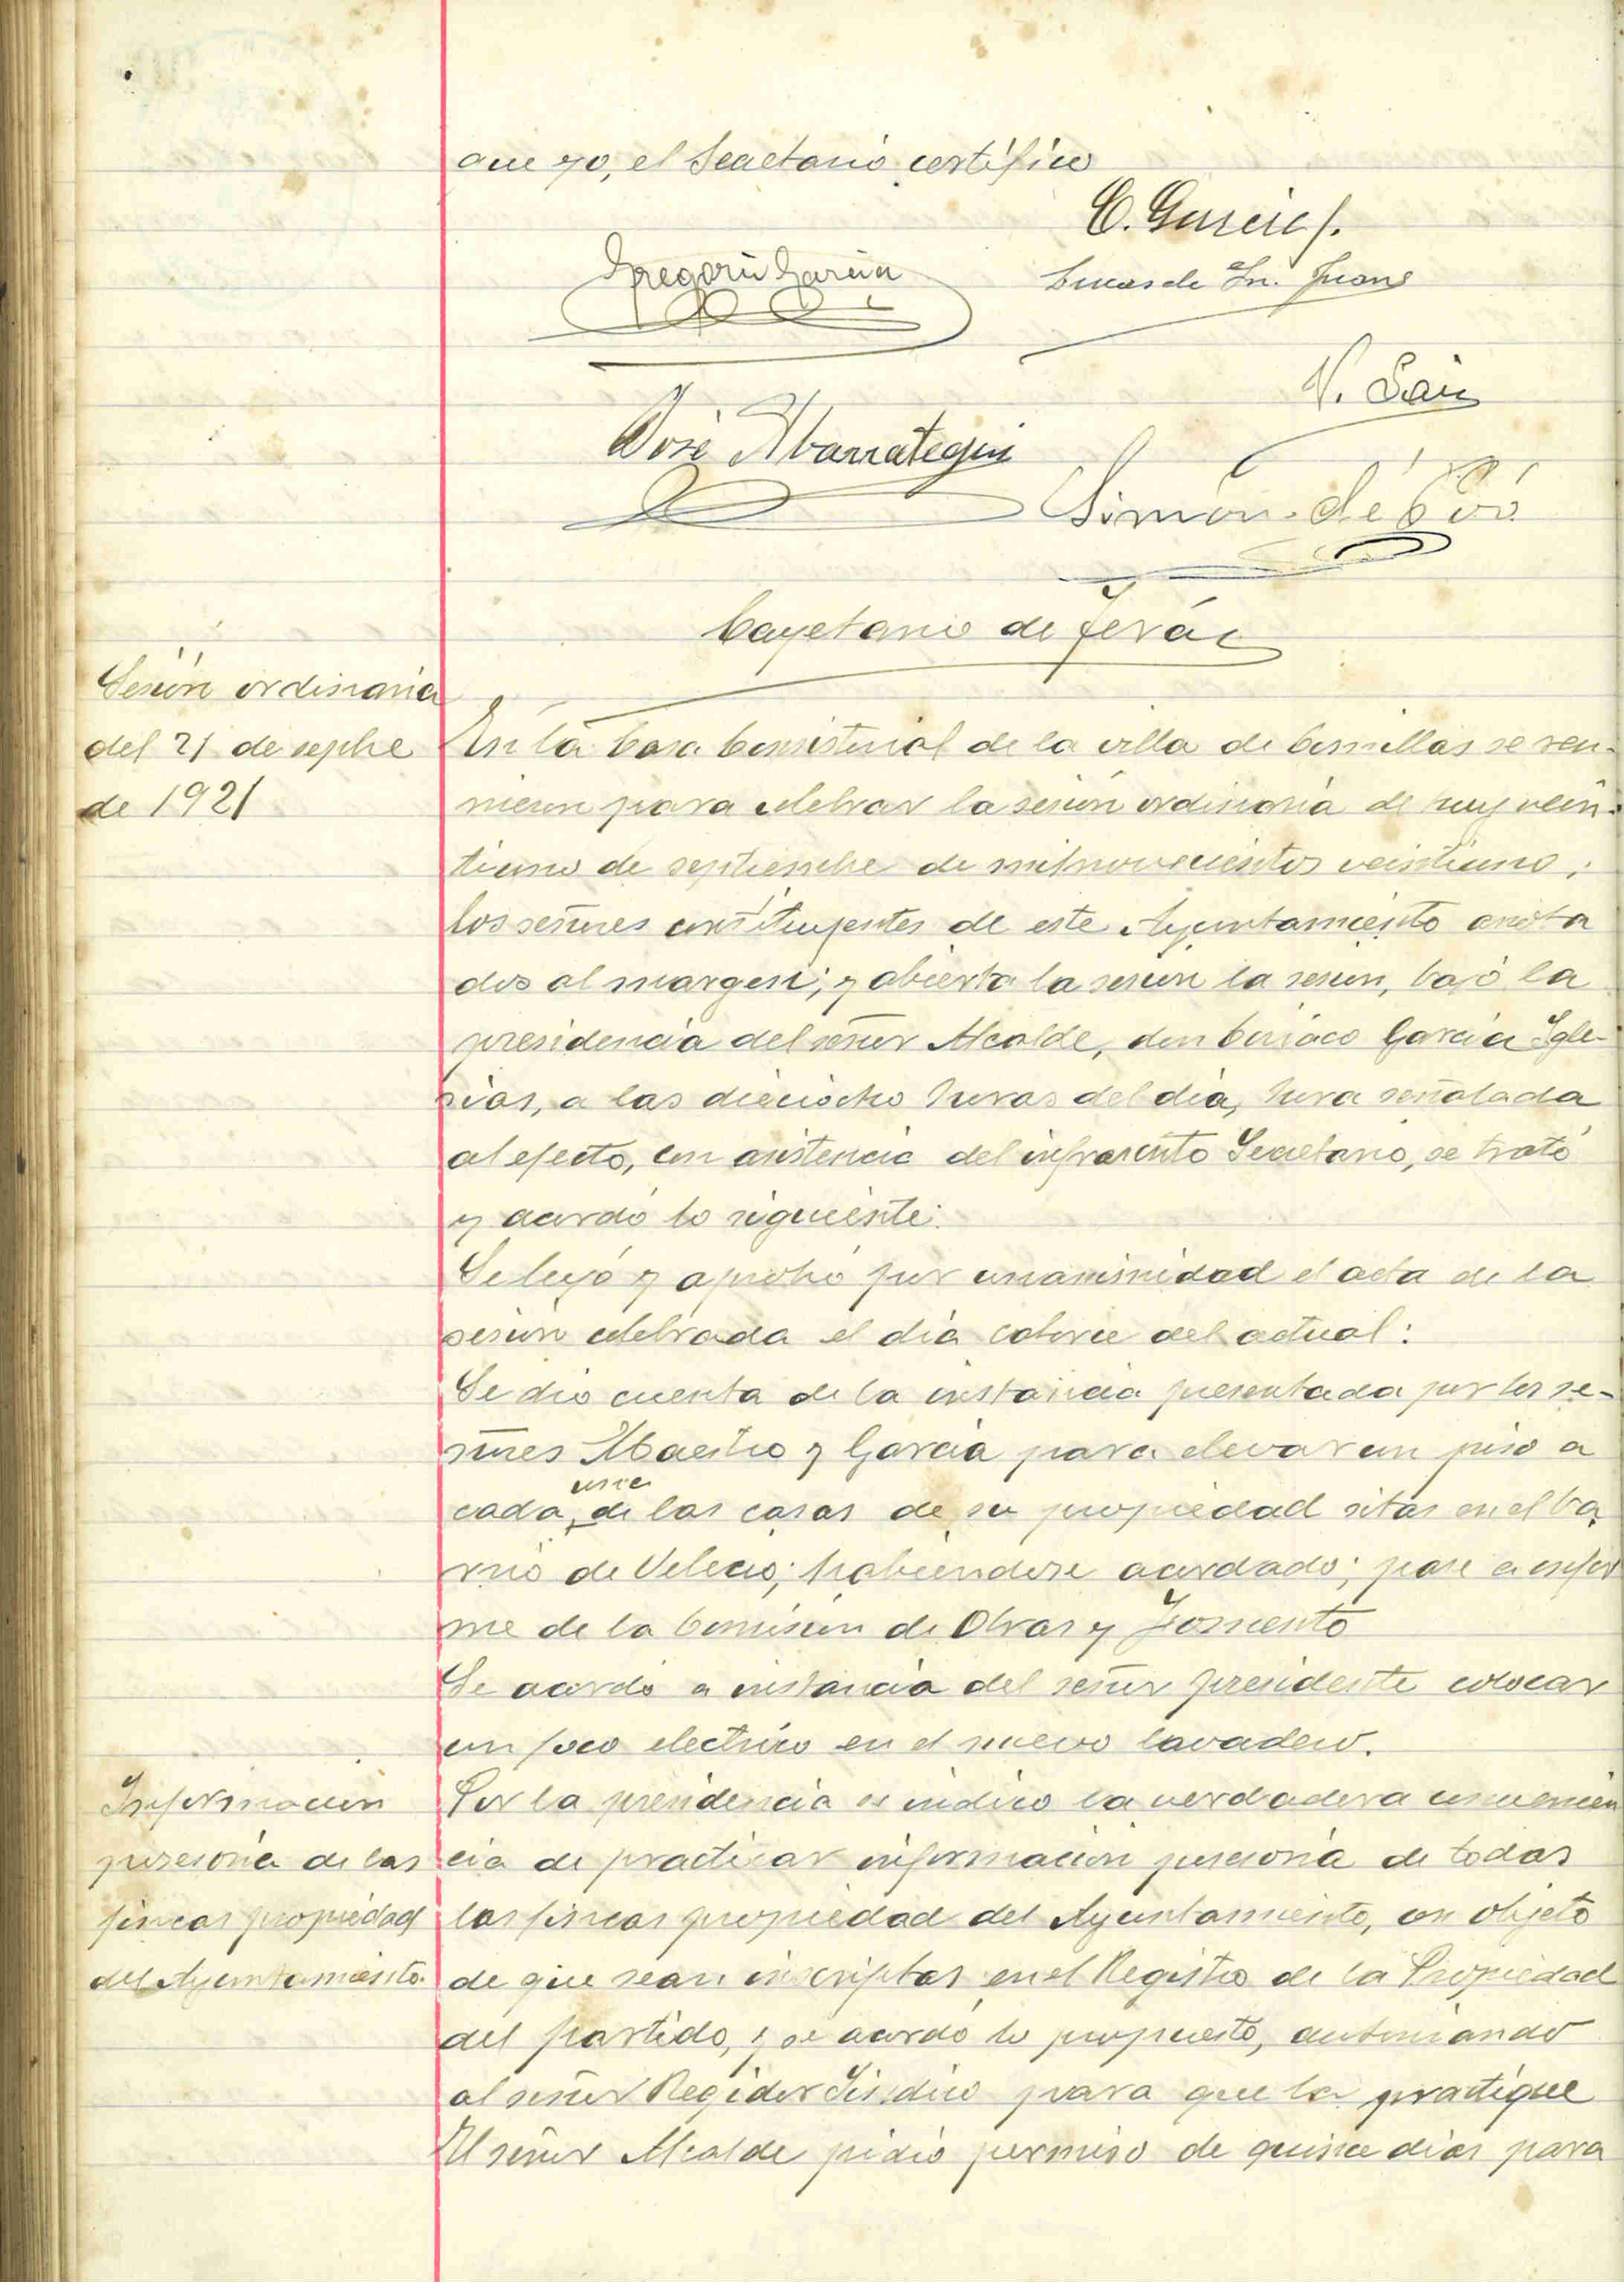 que yo, el Secretario certifico
C. García
Gregorio García
Lucas de Sn. Juan
V. Saiz
José Abarrategui
Simón de Cos
Cayetano de Terán
Sesión ordinaria
del 21 de sepbre
de 1921
En la Casa Consistorial de la villa de Comillas se reu-
nieron para celebrar la sesión ordinaria de hoy vein-
tiuno de septiembre de mil novecientos veintiuno,
los señores constituyentes de este Ayuntamiento anota
dos al margen; y abierta la sesión la sesión, bajo la
presidencia del señor Alcalde, don Ciriaco García Igle-
sias, a las dieciocho horas del día, hora señalada
al efecto, con asistencia del infrascrito Secretario, se trató
y acordó lo siguiente:
Se leyó y aprobó por unanimidad el acta de la
sesión celebrada el día catorce del actual:
Se dio cuenta de la instancia presentada por los se-
ñores Maestro y García para elevar un piso a
cada una de las casas de su propiedad sitas en el ba
rrio de Velecio; habiendose acordado; pase a infor
me de la Comisión de Obras y Fomento
Se acordó a instancia del señor presidente colocar
un foco electrico en el nuevo lavadero.
Información
posesoria de las
fincas propiedad
del Ayuntamiento.
Por la presidencia se indicó la verdadera convenien
cia de practicar información posesoria de todas
las fincas propiedad del Ayuntamiento, con objeto
de que sean inscriptas en el Registro de la Propiedad
del partido, y se acordó lo propuesto, autorizando
al señor Regidor Síndico para que la practique
El señor Alcalde pidió permiso de quince días para